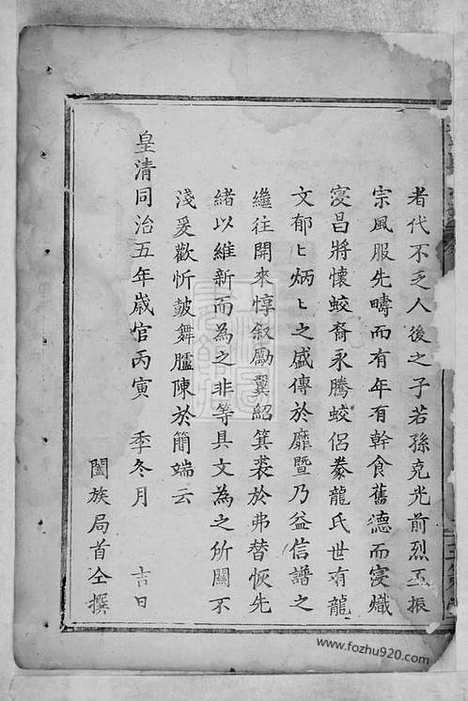 者代不乏人後之子若孫克光前烈丕振
宗風服先疇而有年有幹食舊德而寖熾
寖昌將懷蛟裔永騰蛟侶豢龍氏世有龍
文郁〻炳〻之盛傳於靡暨乃益信譜之
繼往開來惇叙勵翼紹箕裘於弗替恢先
緒以維新而為之非等具文為之所關不
淺爰歡忻鼓舞臚陳於簡端云
皇清同治五年歲官丙寅 季冬月 吉日
闔族局首仝撰
www.fozhu920.com